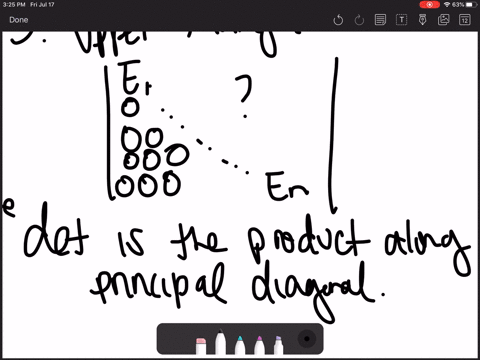 3:25 PM Fri Jul 17
63%
Done
T
12
3. Upper
E₁ ?
0
0 0
0 0 0
0 0 0 En
e
det is the product along
principal diagonal.